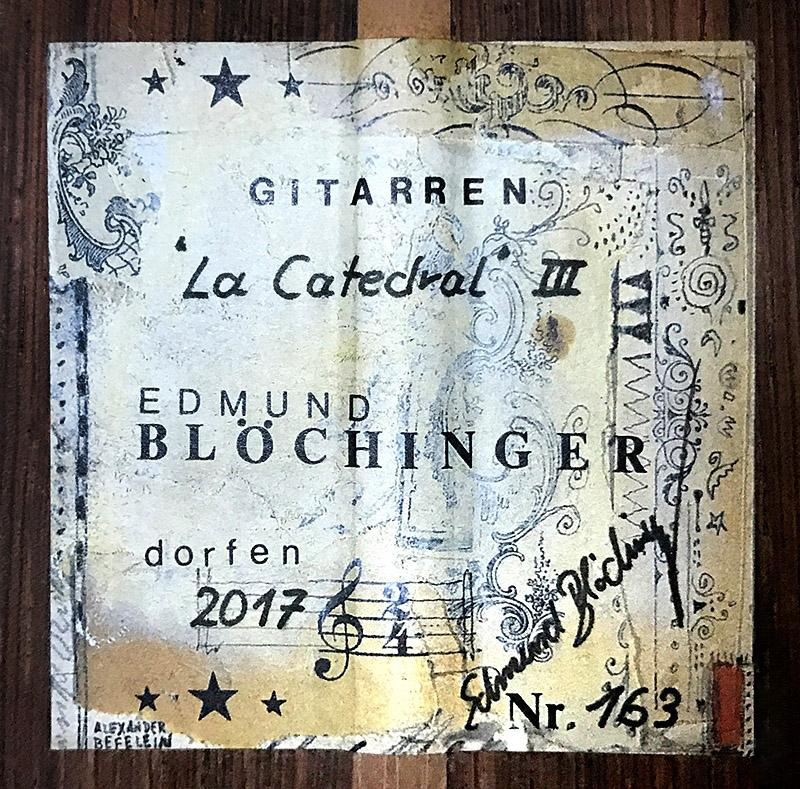 GITARREN
"La Catedral" III
EDMUND
BLÖCHINGER
dorfen
2017
2
4
Edmund Blöching
Nr. 163
ALEXANDER
BEFELEIN